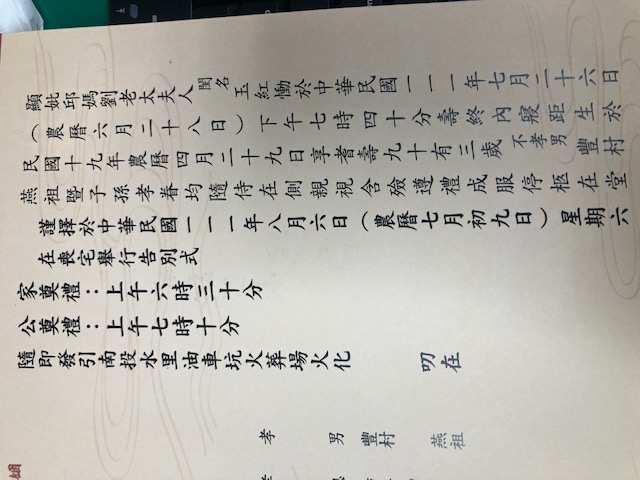 顯妣邱媽劉老太夫人閨名玉紅慟於中華民國一一一年七月二十六日
（農曆六月二十八日）下午七時四十分壽終內寢距生於
民國十九年農曆四月二十九日享耆壽九十有三歲不孝男豐村
燕祖暨子孫孝眷均隨侍在側親視含殮遵禮成服停柩在堂
謹擇於中華民國一一一年八月六日（農曆七月初九日）星期六
在喪宅舉行告別式
家奠禮：上午六時三十分
公奠禮：上午七時十分
隨即發引南投水里油車坑火葬場火化
叨在
孝男豐村燕祖